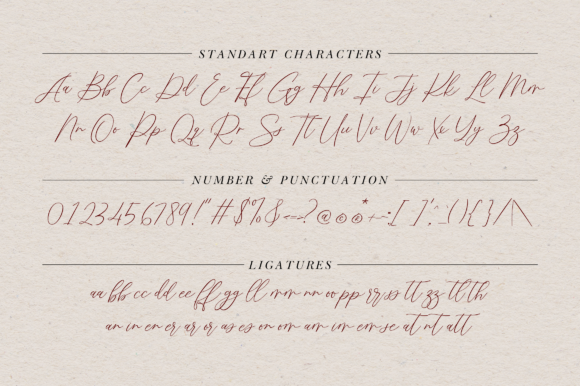 STANDART CHARACTERS
Aa Bb Cc Dd Ee Ff Gg Hh Ii Jj Kk Ll Mm
Nn Oo Pp Qq Rr Ss Tt Uu Vv Ww Xx Yy Zz
NUMBER & PUNCTUATION
0123456789!"#$%&
LIGATURES
aa bb cc dd ee ff gg ll mm nn oo pp rr ss tt zz tl th
an in en er ar or as es on om am im em se at nt att